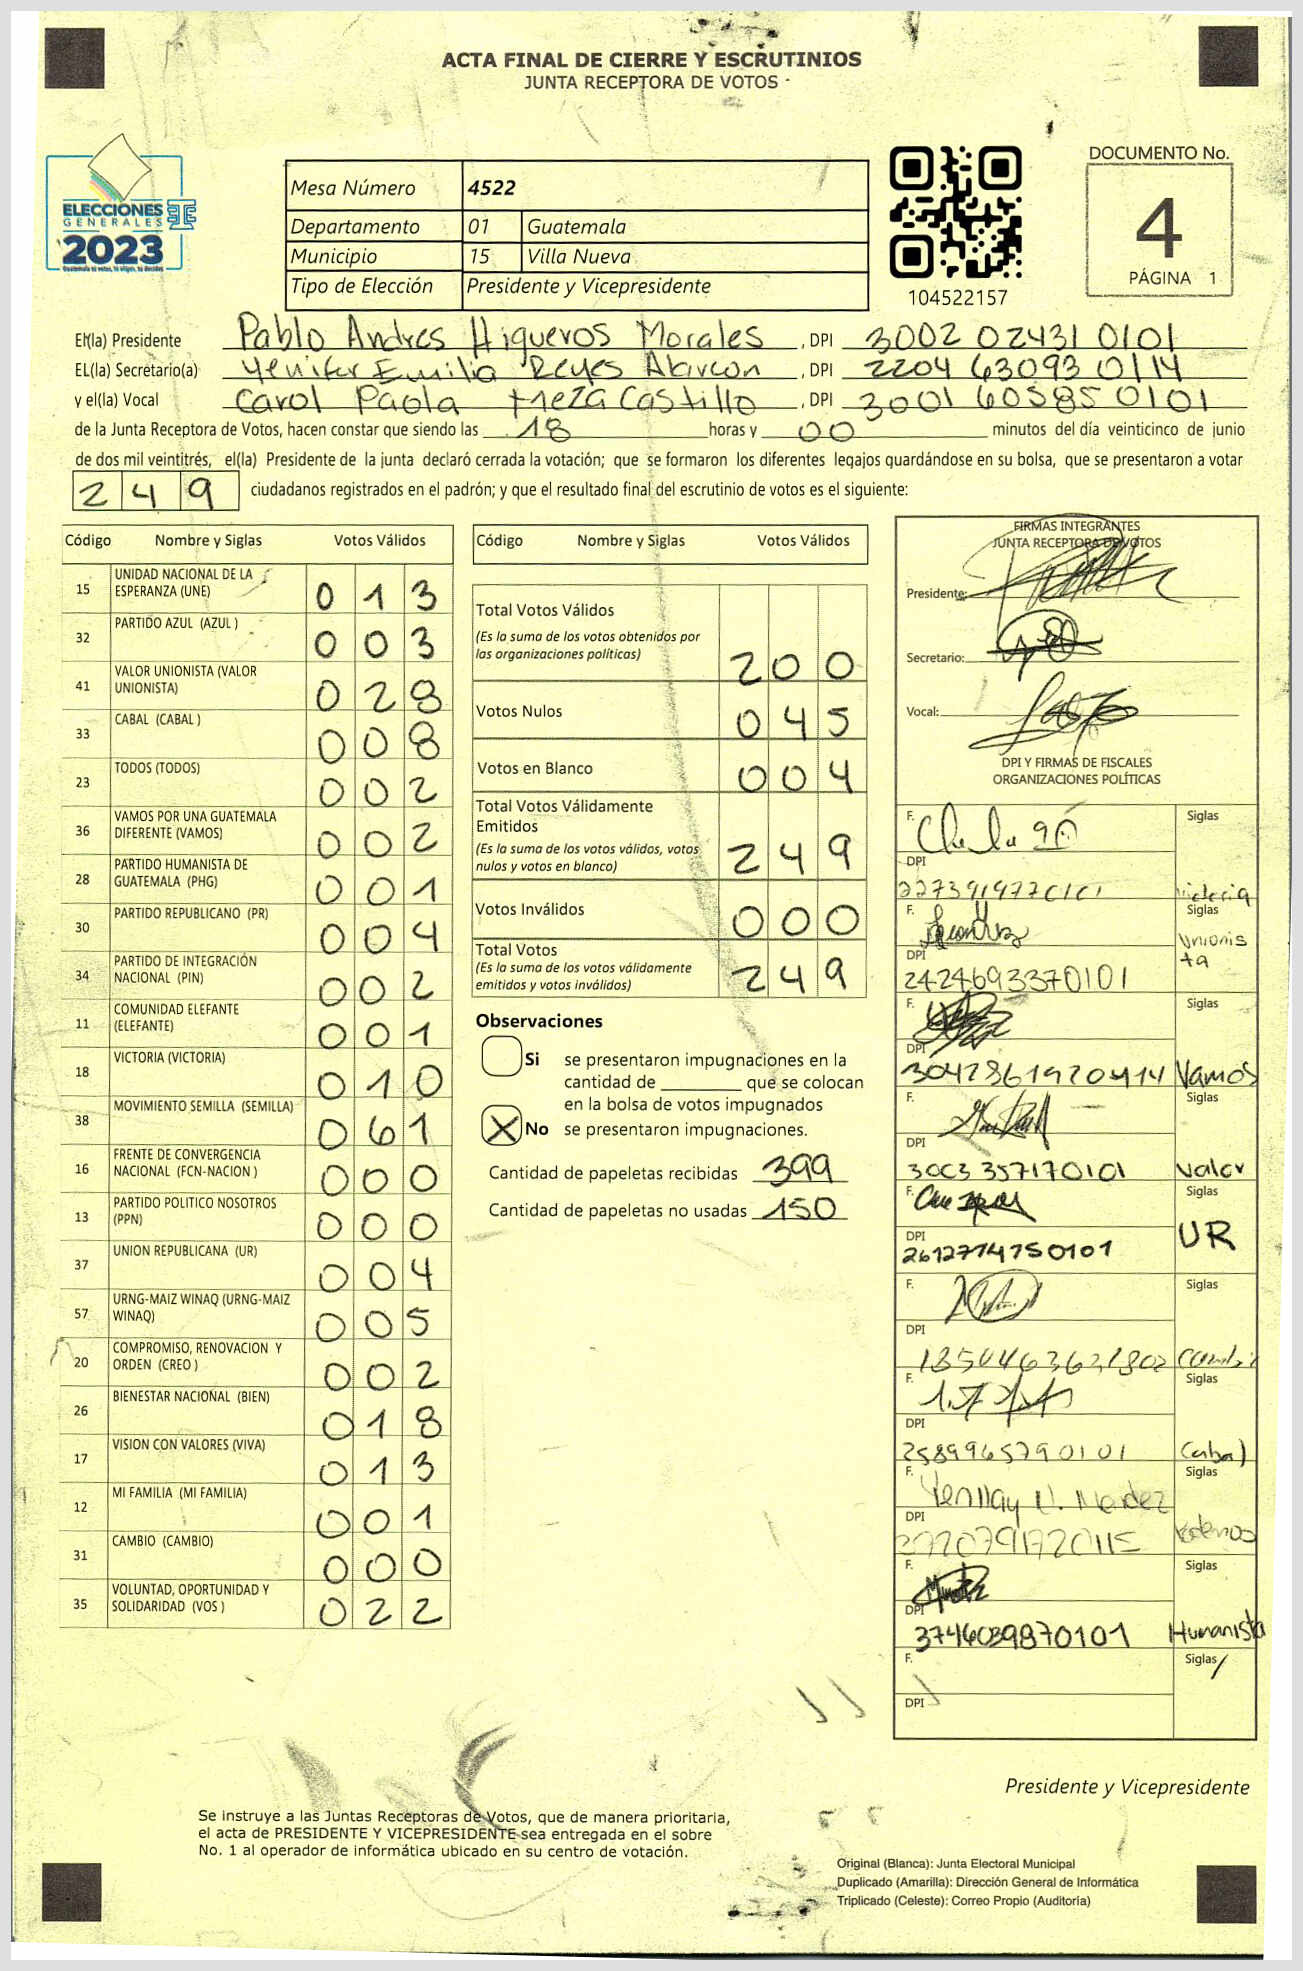 ACTA FINAL DE CIERRE Y ESCRUTINIOS
JUNTA RECEPTORA DE VOTOS
ELECCIONES
GENERALES
2023
Mesa Número 4522
Departamento 01 Guatemala
Municipio 15 Villa Nueva
Tipo de Elección Presidente y Vicepresidente
104522157
DOCUMENTO No.
4
PÁGINA 1
El(la) Presidente Pablo Andres Higueros Morales , DPI 3002 02431 0101
EL(la) Secretario(a) Yenifer Emilia Reyes Alarcon , DPI 2204 63093 0114
y el(la) Vocal Carol Paola Meza Castillo , DPI 3001 60585 0101
de la Junta Receptora de Votos, hacen constar que siendo las 18 horas y 00 minutos del día veinticinco de junio
de dos mil veintitrés, el(la) Presidente de la junta declaró cerrada la votación; que se formaron los diferentes legajos guardándose en su bolsa, que se presentaron a votar
249 ciudadanos registrados en el padrón; y que el resultado final del escrutinio de votos es el siguiente:
Código Nombre y Siglas Votos Válidos
15 UNIDAD NACIONAL DE LA ESPERANZA (UNE) 013
32 PARTIDO AZUL (AZUL ) 003
41 VALOR UNIONISTA (VALOR UNIONISTA) 028
33 CABAL (CABAL ) 008
23 TODOS (TODOS) 002
36 VAMOS POR UNA GUATEMALA DIFERENTE (VAMOS) 002
28 PARTIDO HUMANISTA DE GUATEMALA (PHG) 001
30 PARTIDO REPUBLICANO (PR) 004
34 PARTIDO DE INTEGRACIÓN NACIONAL (PIN) 002
11 COMUNIDAD ELEFANTE (ELEFANTE) 001
18 VICTORIA (VICTORIA) 010
38 MOVIMIENTO SEMILLA (SEMILLA) 061
16 FRENTE DE CONVERGENCIA NACIONAL (FCN-NACION ) 000
13 PARTIDO POLITICO NOSOTROS (PPN) 000
37 UNION REPUBLICANA (UR) 004
57 URNG-MAIZ WINAQ (URNG-MAIZ WINAQ) 005
20 COMPROMISO, RENOVACION Y ORDEN (CREO ) 002
26 BIENESTAR NACIONAL (BIEN) 018
17 VISION CON VALORES (VIVA) 013
12 MI FAMILIA (MI FAMILIA) 001
31 CAMBIO (CAMBIO) 000
35 VOLUNTAD, OPORTUNIDAD Y SOLIDARIDAD (VOS ) 022
Código Nombre y Siglas Votos Válidos
Total Votos Válidos
(Es la suma de los votos obtenidos por
las organizaciones políticas) 200
Votos Nulos 045
Votos en Blanco 004
Total Votos Válidamente
Emitidos
(Es la suma de los votos válidos, votos
nulos y votos en blanco) 249
Votos Inválidos 000
Total Votos
(Es la suma de los votos válidamente
emitidos y votos inválidos) 249
Observaciones
Si se presentaron impugnaciones en la
cantidad de ________ que se colocan
en la bolsa de votos impugnados
X No se presentaron impugnaciones.
Cantidad de papeletas recibidas 399
Cantidad de papeletas no usadas 150
FIRMAS INTEGRANTES
JUNTA RECEPTORA DE VOTOS
Presidente:
Secretario:
Vocal:
DPI Y FIRMAS DE FISCALES
ORGANIZACIONES POLÍTICAS
F. Siglas
DPI
Victoria
F. Siglas
Unionis
ta
DPI
2424693370101
F. Siglas
DPI
3042861920414 Vamos
F. Siglas
DPI
3003 357170101 Valor
F. Siglas
UR
DPI
2612774750101
F. Siglas
DPI
F. Siglas
DPI
2589965790101 Cabal
F. Siglas
DPI
F. Siglas
DPI
3746039870101 Humanista
F. Siglas
DPI
Presidente y Vicepresidente
Se instruye a las Juntas Receptoras de Votos, que de manera prioritaria,
el acta de PRESIDENTE Y VICEPRESIDENTE sea entregada en el sobre
No. 1 al operador de informática ubicado en su centro de votación.
Original (Blanca): Junta Electoral Municipal
Duplicado (Amarilla): Dirección General de Informática
Triplicado (Celeste): Correo Propio (Auditoría)